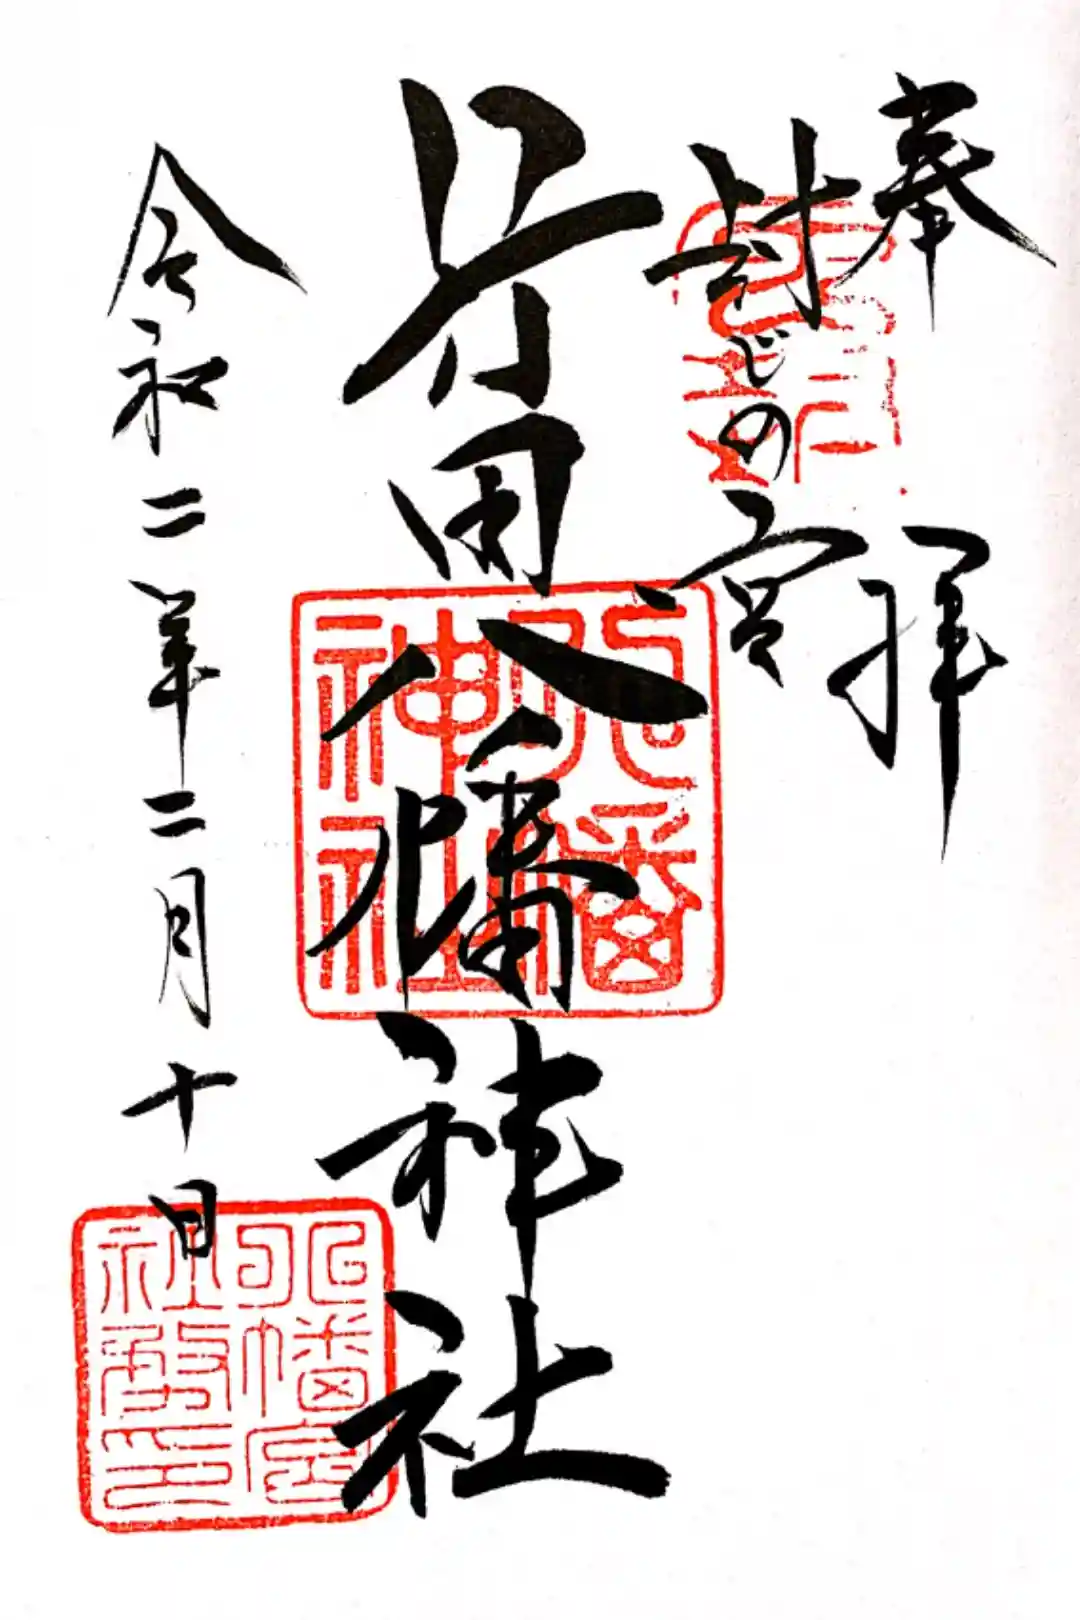 奉拝
封じの宮
行田八幡神社
八幡
神社
令和二年二月十日
八幡宮
社務印